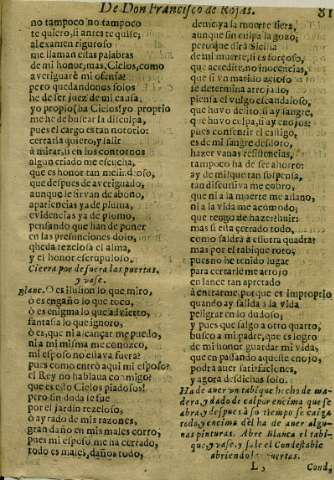 De Don Francisco de Rojas. 81
no tampoco no tampoco
te quiero, si antes te quise,
al examen riguroso
me llaman estas palabras
de mi honor, mas, Cielos, como
averiguarè mi ofensa?
pero quedandonos solos
he de ser juez de mi causa,
yo propio, ha Cielos! yo proprio
me he de buscar la disculpa,
pues el cargo es tan notorio:
cerrarla quiero, y salir
à mirar, si en los contornos
algun criado me escucha,
que es honor tan melindroso,
que despues de averiguado,
aunque le sirvan de abono,
apariencias ya de pluma,
evidencias ya de plomo,
pensando que han de poner
en las presunciones dolo,
queda rezelosa el alma,
y el honor escrupuloso.
Cierra por defuera las puertas,
y vase.
Blanc. O es ilusion lo que miro,
ò es engaño lo que toco,
ò es enigma lo que advierto,
fantasia lo que ignoro,
ò es, que ni alcançar me puedo,
ni à mi misma me conozco,
mi esposo no estava fuera?
pues como entrò aqui mi esposo?
el Rey no hablava conmigo?
que es esto Cielos piadosos!
pero sin duda se fue
por el jardin rezeloso,
ò ayrado de mis razones,
gran daño en mis males corro,
pues mi esposo me ha cerrado,
todo es males, daños todo,
de mi, y a la muerte fiera,
aunque sin culpa la gozo,
pero que dirà Sicilia
de mi muerte, si es forçoso,
que acredite, no inocencias,
que si un marido zeloso
se determina arrojado,
piensa el vulgo escandaloso,
que huvo delito, si ay sangre,
que huvo culpa, si ay enojos:
pues consentir el castigo,
es de mi sangre desdoro,
hazer vanas resistencias,
tampoco ha de ser ahorro:
ay de mi! que tan suspensa,
tan discursiva me cobro,
que ni a la muerte me allano,
ni a la vida me acomodo;
que tengo de hazer huir:
mas si està cerrado todo,
como saldrà a esfera quadra:
mas por el tabique roto,
pues no he tenido lugar
para cerrarle me arrojo
en lance tan apretado
à entrarme, porque es improprio
quando ay salida a la vida
peligrar en lo dudoso,
y pues que salgo a otro quarto,
busco a mi padre, que es logro
de mi honor guardar mi vida;
que en passando aqueste enojo,
podrà aver satisfaciones,
y agora desdichas solo.
Ha de aver un tabique hecho de ma-
dera, y dado de cal por encima que se
abra, y despues à su tiempo se caiga
todo, y encima del ha de aver algu-
nas pinturas. Abre Blanca el tabi-
que, y vase, y sale el Condestable
abriendo las puertas.
L, Cond.